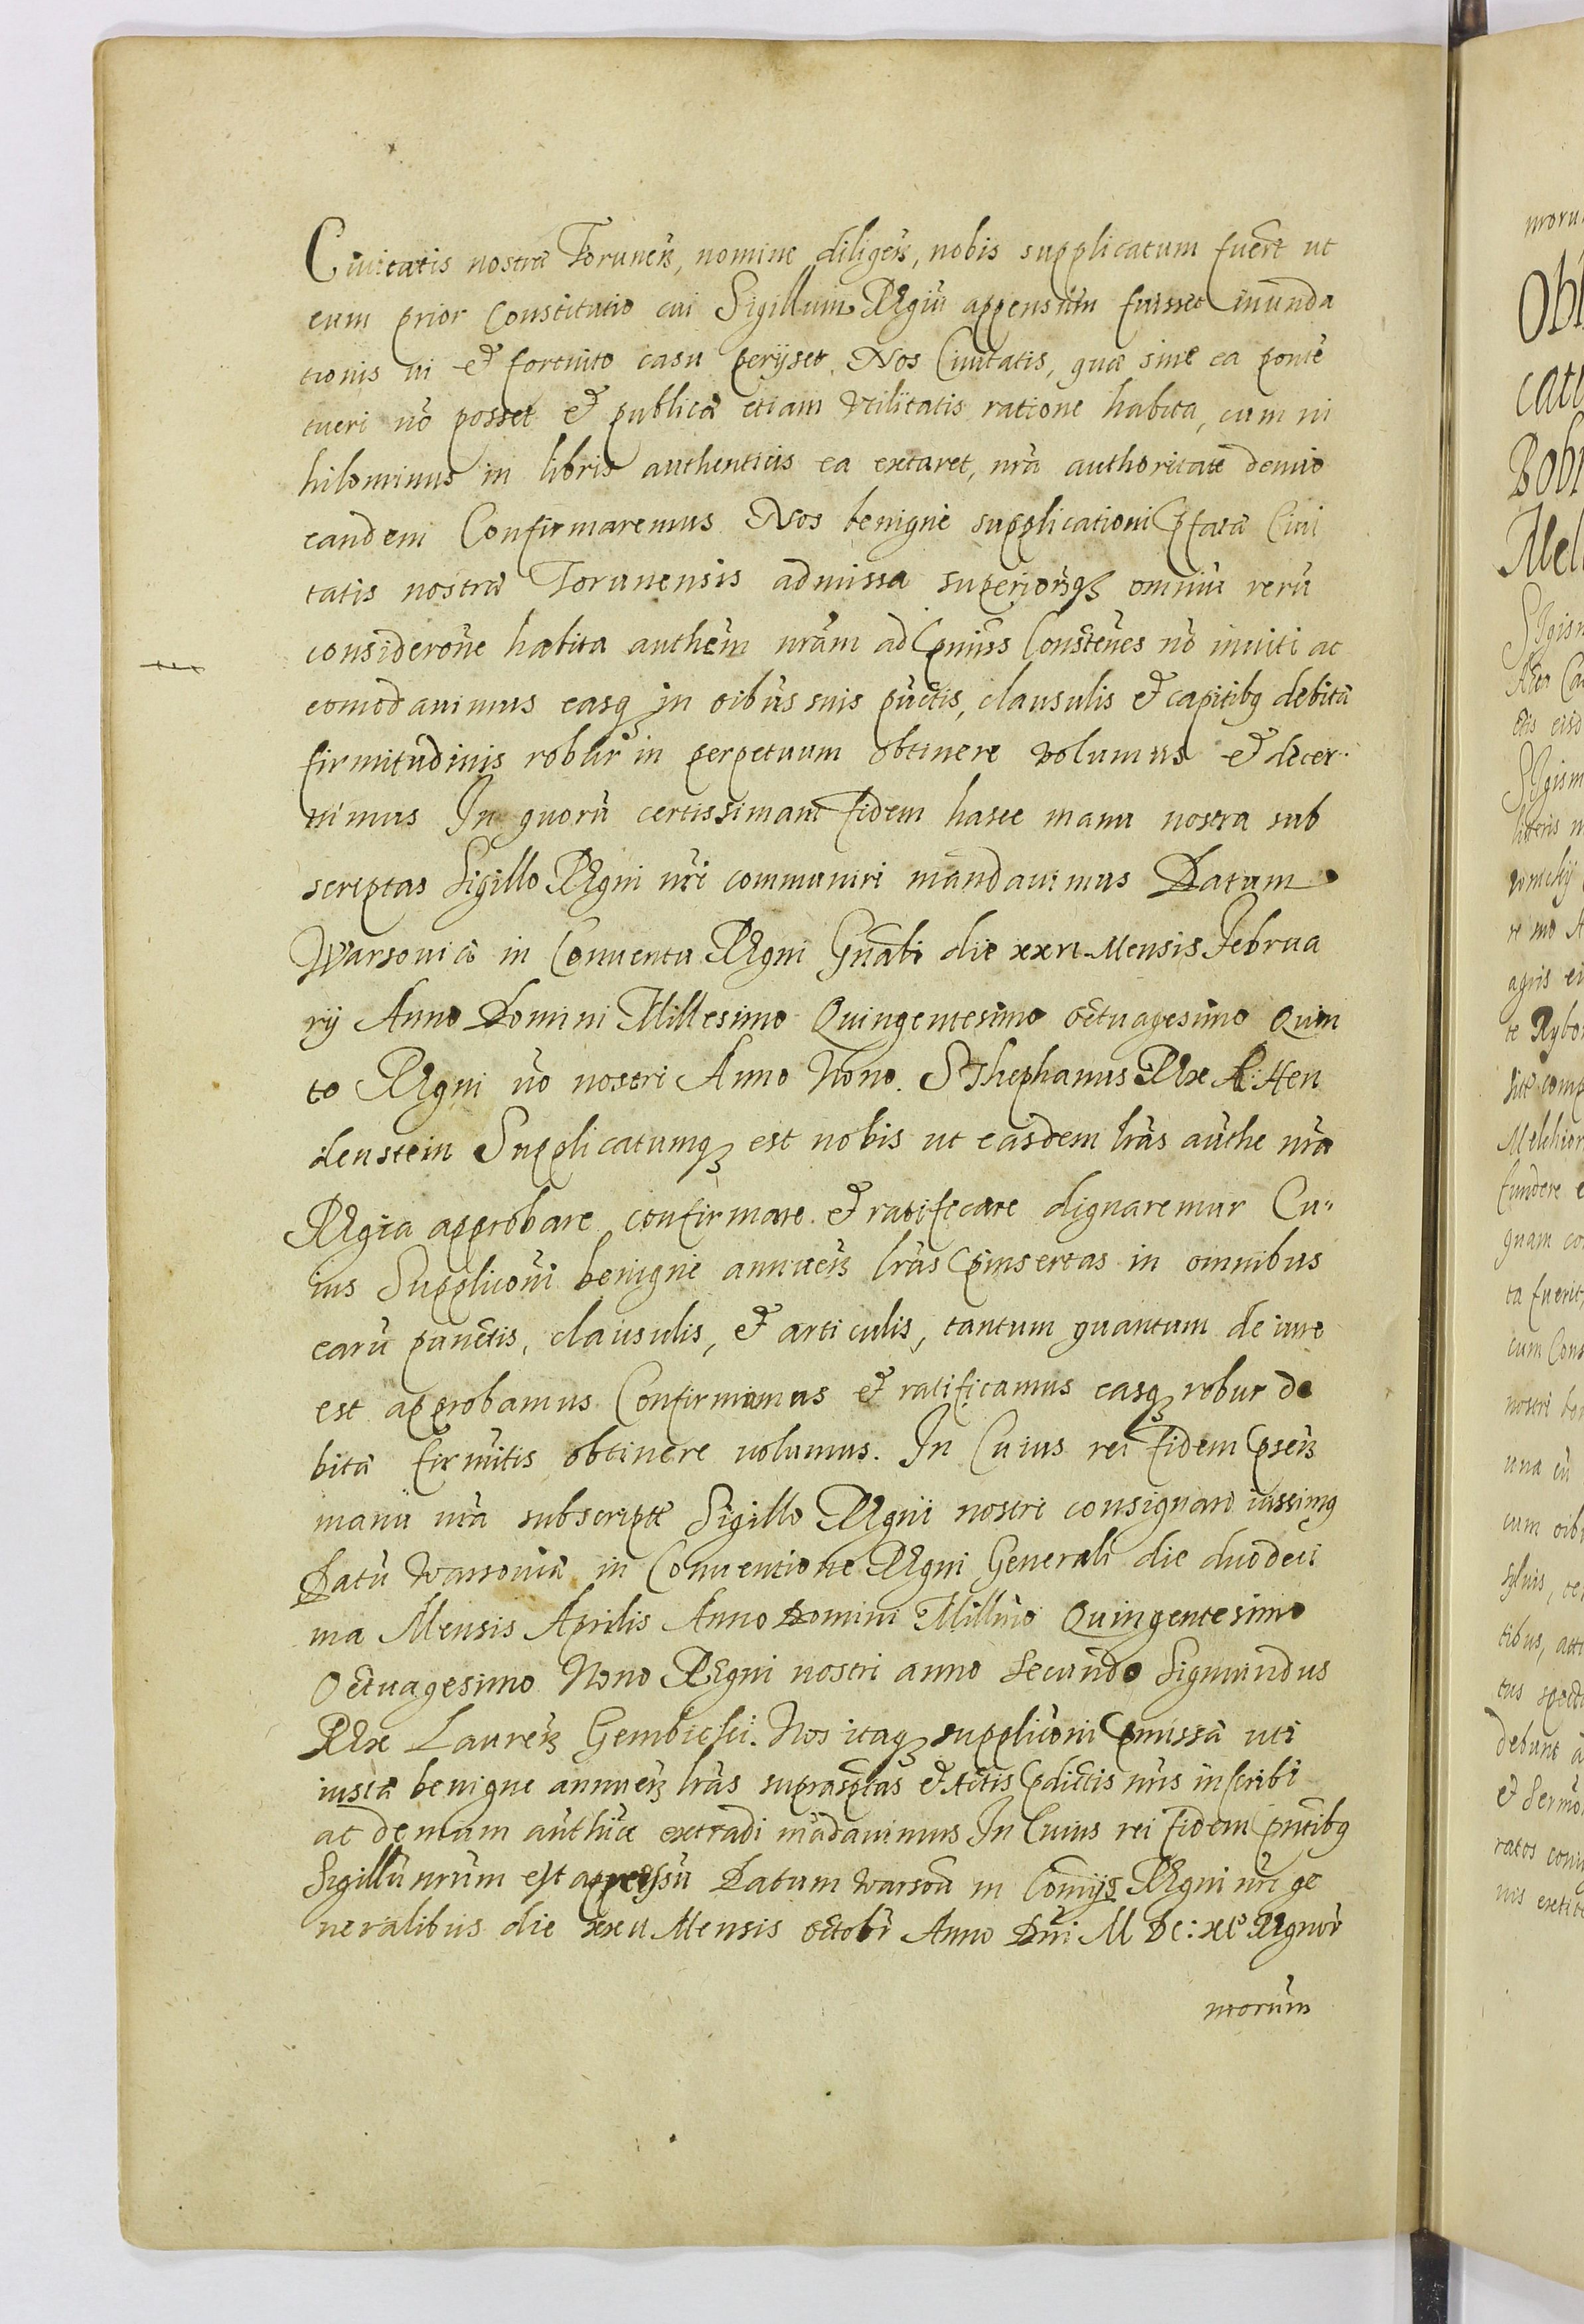 Ciuitatis nostræ Toruneñ, nomine diligeñ, nobis supplicatum fuerit ut
cum prior Constitutio cui Sigillum Regiũ appensum fuisset inunda
tionis ui et fortuito casu perijset, Nos Ciuitatis, quæ sine ea ponte
tueri nõ posset et publicæ etiam Vtilitatis ratione habita, cum ni
hilominus in libris authenticis ea extaret, nr̃a authoritate denuo
eandem Confirmaremus Nos benigne supplicationi p̃fatæ Ciui
tatis nostræ Torunensis admissa superiorq̃ omniũ rerũ
consideroñe habita authem̃ nr̃am ad p̃miss Constc̃nes nõ inuiti ac
comodauimus easq̃ in oibus suis pũctis, clausulis et capitibq debitũ
firmitudinis robur in perpetuum obtinere volumus et decer
nimus In quorũ certissimam fidem hasce manu nostra sub
scriptas Sigillo Regni nr̃i communiri mandauimus Datum
Warsouiæ in Conuentu Regni Gñali die xxvi Mensis Februa
rij Anno Domini Millesimo Quingentesimo octuagesimo Quin
to Regni ũo nostri Anno Nono. Sthephanus Rex R Hen
denstein Supplicatumq̃ est nobis ut easdem lr̃as authe nr̃a
Regia approbare confirmare et ratificare dignaremur Cu
ius Supplicoñi benigne annueñ lr̃as p̃insertas in omnibus
earũ punctis, clausulis, et articulis, tantum quantum de iure
est approbamus Confirmamus et ratificamus easq̃ robur de
bitæ firmitis obtinere uolumus. In Cuius rei fidem p̃señ
manu nr̃a subscriptæ Sigillo Regni nostri consignari iussimq
Datũ Warsouiæ in Conuentione Regni Generali die duodeci
ma Mensis Aprilis Anno Domini Millmo Quingentesimo
Octuagesimo Nono Regni nostri anno Secundo Sigmundus
Rex Laureñ Gembicki. Nos itaq̃ supplicoñi p̃missæ uti
iustæ benigne annueñ lr̃as suprasptas et Actis p̃dictis nr̃is inscribi
ac demum authñce extradi mãdauimus In Cuius rei fidem p̃ntibq
Sigillũ nrũm est appensũ Datum Warsou in Comijs Regni nr̃i ge
neralibus die xxii Mensis octobr Anno Dñi M DC: XI° Regnor
morum